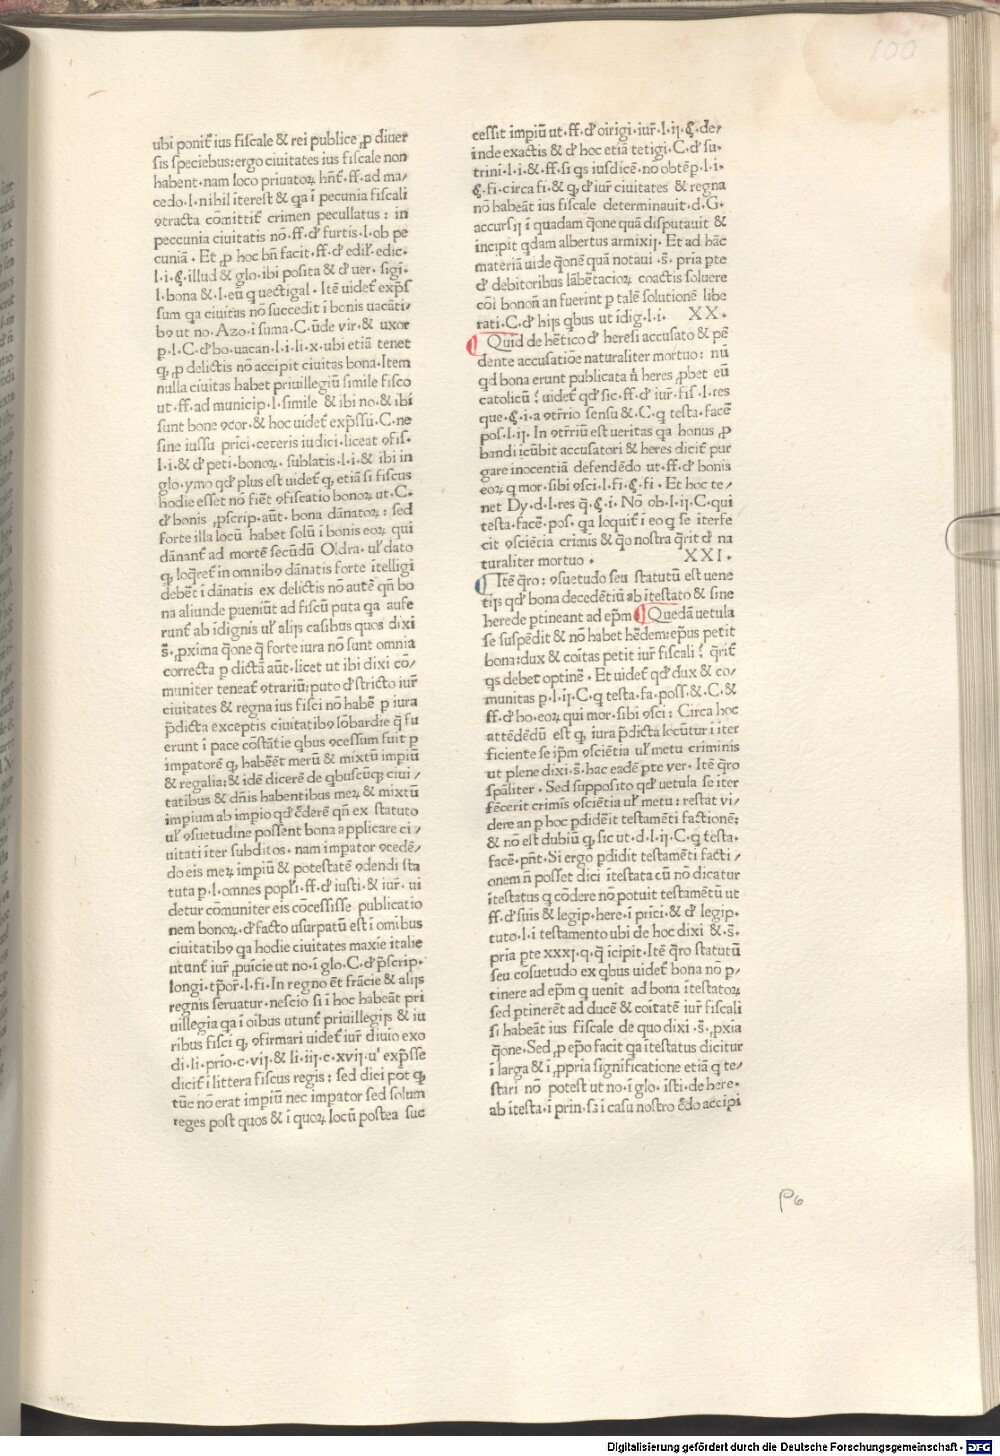 100
ubi ponit̃ ius fiſcale & rei publice ꝓ diuer
ſis ſpeciebus: ergo ciuitates ius fiſcale non
habent · nam loco priuatoꝝ hñt̃ · ff · ad ma/
cedo · l · nihil ītereſt & qa ī pecunia fiſcali
ꝯtracta cōmittit̃ crimen pecullatus : in
peccunia ciuitatis nō · ff · đ furtis · l · ob pe
cuniā · Et ꝓ hoc bñ facit · ff · đ edil̃ · edic ·
l · i · § · illud & glo · ibi poſita & đ uer · ſigi ·
l · bona & l · eū q uectigal · Itē uidet̃ exp̄ſ
ſum qa ciuitas nō ſuccedit ī bonis uacāti/
bꝰ ut no · Azo · ī ſuma · C · ūde vir · & uxor
p · l · C · đ bo · uacan · l · i · li · x · ubi etiā tenet
ꝙ ꝓ delictis nō accipit ciuitas bona · Item
nulla ciuitas habet priuillegiū ſimile fiſco
ut · ff · ad municip · l · ſimile & ibi no · & ibi
ſunt bone ꝯcor · & hoc uidet̃ exp̄ſſū · C · ne
ſine iuſſu prīci · ceteris iudici · liceat ꝯfiſ ·
l · i · & đ peti · bonoꝝ · ſublatis · l · i · & ibi in
glo · ymo qđ plus eſt uidet̃ ꝙ etiā ſi fiſcus
hodie eſſet nō fiet̃ ꝯfiſcatio bonoꝝ ut · C ·
đ bonis ꝓſcrip · aut̄ · bona dānatoꝝ : ſed
forte illa locū habet ſolū ī bonis eoꝝ qui
dānant̃ ad mortē ſecūdū Oldra · ul̃ dato
ꝙ loqret̃ in omnibꝰ dānatis forte ītelligi
debet̃ ī dānatis ex delictis nō autē qñ bo
na aliunde pueniūt ad fiſcū puta qa aufe
runt̃ ab īdignis ul̃ alijs caſibus quos dixi
s̄ · ꝓxima q̄one q̄ forte iura nō ſunt omnia
correcta p dictā aut̄ · licet ut ibi dixi cō/
muniter teneat̃ ꝯtrariū; puto đ ſtricto iur̃
ciuitates & regna ius fiſci nō habēt p iura
p̄dicta exceptis ciuitatibꝰ lōbardie q̄ fu
erunt ī pace cōſtātie qbus ꝯceſſum fuit p
impatorē ꝙ habeēt merū & mixtū impiū
& regalia; & idē dicerē de qbuſcūꝙ ciui/
tatibus & dñis habentibus meꝝ & mixtū
impium ab impio qđ c̄derē qñ ex ſtatuto
ul̃ ꝯſuetudine poſſent bona applicare ci/
uitati īter ſubditos · nam impator ꝯcedē/
do eis meꝝ impiū & poteſtatē ꝯdendi ſta
tuta p · l · omnes popl̃i · ff · đ iuſti · & iur̃ · ui
detur cōmuniter eis cōceſſiſſe publicatio
nem bonoꝝ · đ facto uſurpatū eſt ī omibus
ciuitatibꝰ qa hodie ciuitates maxīe italie
utunt̃ iur̃ ꝓuīcie ut no · ī glo · C · đ p̄ſcrip ·
longi · tp̄or̃ · l · fi · In regno ēt frācie & alijs
regnis ſeruatur · neſcio ſi ī hoc habeāt pri
uillegia qa ī oībus utunt̃ priuillegijs & iu
ribus fiſci ꝙ ꝯfirmari uidet̃ iur̃ diuīo exo
di · li · prīo · c · vij · & li · iij · c · xvij · u' exp̄ſſe
dicit̃ ī littera fiſcus regis : ſed dici pōt ꝙ
tūc nō erat impiū nec impator ſed ſolum
reges poſt quos & ī quoꝝ locū poſtea ſuc
ceſſit impiū ut · ff · đ oīrigi · iur̃ · l · ij · § · de/
inde exactis & đ hoc etiā tetigi · C · đ ſu ·
trini · l · i · & · ff · ſi qs iuſdicē · nō obtēp · l · i ·
§ · fi · circa fi · & ꝙ đ iur̃ ciuitates & regna
nō habeāt ius fiſcale determinauit · d · G ·
accurſij ī quadam q̄one quā diſputauit &
incipit qdam albertus armixij · Et ad hāc
materiā uide q̄onē quā notaui · s̄ · pria pte
đ debitoribus lābētacioꝝ coactis ſoluere
cōi bonoñ an fuerint p talē ſolutionē libe
rati · C · đ hijs qbus ut īdig · l · i · XX ·
Quid de hētico đ hereſi accuſato & pē
dente accuſatiōe naturaliter mortuo : nū
qd bona erunt publicata ñ heres ꝓbet eū
catolicū ? uidet̃ qđ ſic · ff · đ iur̃ · fiſ · l · res
que · § · i · a ꝯtr̄rio ſenſu & · C · q teſta · facē
poſ · l · ij · In ꝯtr̄riū eſt ueritas qa honus ꝓ
bandi īcūbit accuſatori & heres dicit̃ pur
gare inocentiā defendēdo ut · ff · đ bonis
eoꝝ q mor · ſibi ꝯſci · l · fi · § · fi · Et hoc te/
net Dy · d · l · res q̄ · § · i · Nō ob · l · ij · C · qui
teſta · facē · poſ · qa loquit̃ ī eo q ſe īterfe
cit ꝯſciētia crimīs & q̄o noſtra q̄rit đ na
turaliter mortuo · XXI ·
Itē q̄ro : ꝯſuetudo ſeu ſtatutū eſt uene
tijs qđ bona decedētiū ab īteſtato & ſine
herede ptineant ad ep̄m Quedā uetula
ſe ſuſpēdit & nō habet hēdem: ep̄us petit
bona: dux & cōitas petit iur̃ fiſcali ? q̄rit̃
qs debet optinē · Et uidet̃ qđ dux & co/
munitas p · l · ij · C · q teſta · fa · poſſ · & · C · &
ff · đ bo · eoꝝ qui mor · ſibi ꝯſci : Circa hoc
attēdēdū eſt ꝙ iura p̄dicta locūtur ī īter
ficiente ſe ip̄m ꝯſciētia ul̃ metu criminis
ut plene dixi · s̄ · hac eadē pte ver · Itē q̄ro
ſpāliter · Sed ſuppoſito qđ uetula ſe īter
fēcerit crimīs ꝯſciētia ul̃ metu : reſtat vi/
dere an p hoc pdideīt teſtamēti factionē:
& nō eſt dubiū ꝙ ſic ut · d · l · ij · C · q teſta ·
facē · pn̄t · Si ergo pdidit teſtamēti facti/
onem ñ poſſet dici īteſtata cū nō dicatur
īteſtatus q cōdere nō potuit teſtamētū ut
ff · đ ſuis & legip · here · ī prīci · & đ legip ·
tuto · l · i teſtamento ubi de hoc dixi & · s̄ ·
pria pte xxxi · q · q̄ īcipit · Itē q̄ro ſtatutū
ſeu coſuetudo ex qbus uidet̃ bona nō p/
tinere ad ep̄m q uenit ad bona īteſtatoꝝ
ſed ptinerēt ad ducē & cōitatē iur̃ fiſcali
ſi habeāt ius fiſcale de quo dixi · s̄ · ꝓxīa
q̄one · Sed ꝓ ep̄o facit qa īteſtatus dicitur
ī larga & ī ꝓpria ſignificatione etiā q te/
ſtari nō poteſt ut no · ī glo · īſti · de here ·
ab īteſta · ī prin · ſꝫ ī caſu noſtro c̄do accipi
p6
Digitalisierung gefördert durch die Deutsche Forschungsgemeinschaft - DFG